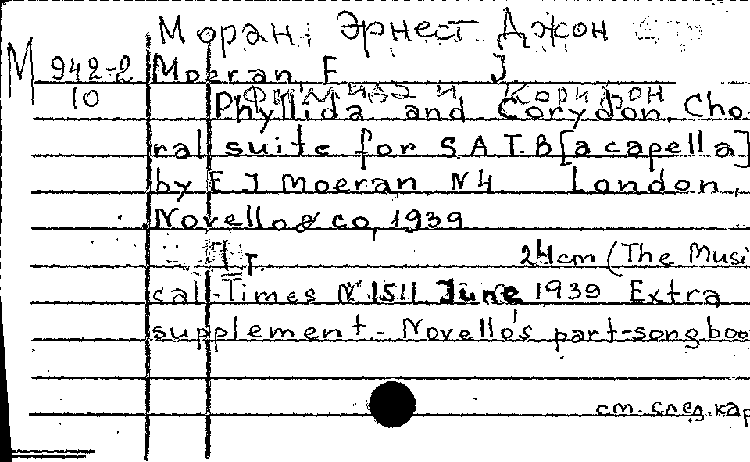 Моран Эрнест Джон
М 942-2 Moeran E J
10 Филлида и Коридон
Phyllida and Corydon. Cho
ral suite for S A T. B [a capella]
by E J Moeran N4 London,
Novello & co, 1939
24cm (The Musi
cal Times N 1511 June 1939 Extra
supplement - Novello's part-songboo
см. след. кар